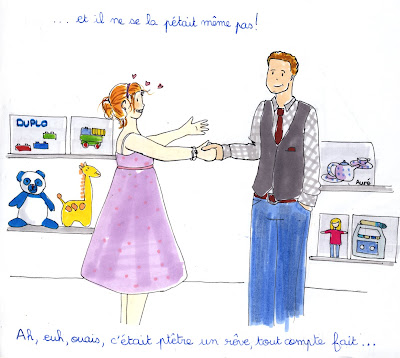 ... et il ne se la pétait même pas!
DUPLO
Auré
Ah, euh, ouais, c'était ptêtre un rêve, tout compte fait...